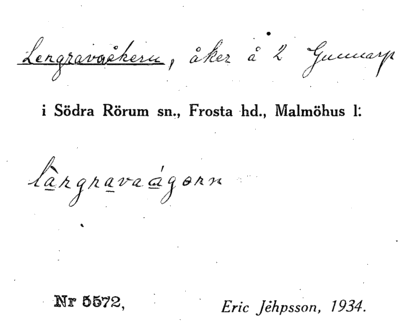 Lergravaåkern, åker å 2 Gunnarp
i Södra Rörum sn., Frosta hd., Malmöhus l:
Nr 5572,
Eric Jéhpsson, 1934.